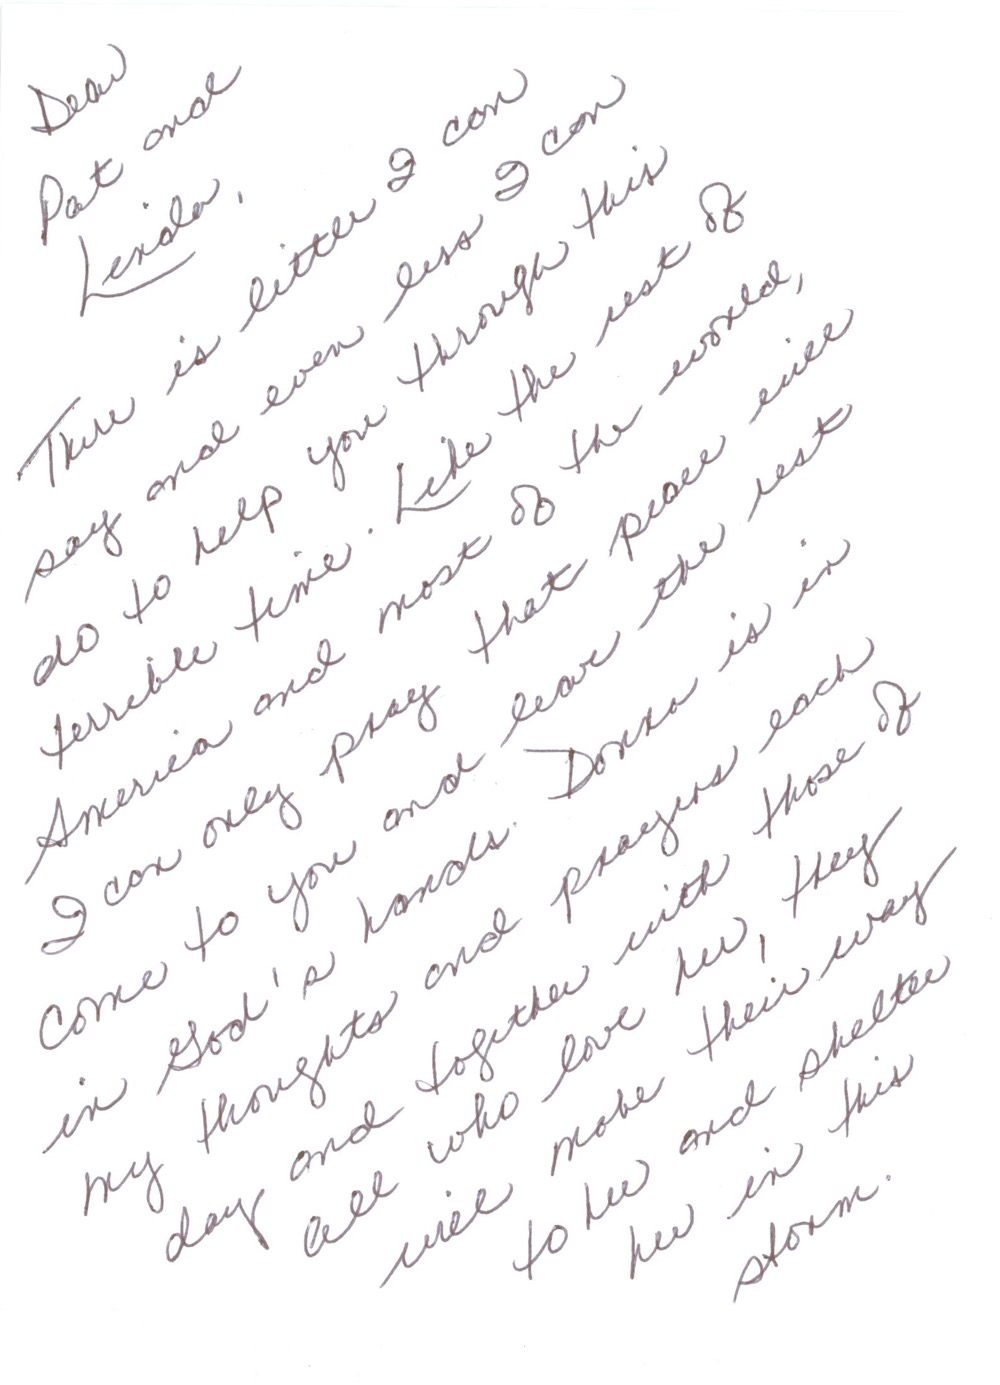 Dear
Pat and
Linda,
There is little I can
say and even less I can
do to help you through this
terrible time. Like the rest of
America and most of the world,
I can only pray that peace will
come to you and leave the rest
in God's hands. Donna is in
my thoughts and prayers each
day and together with those of
all who love her, they
will make their way
to her and shelter
her in this
storm.